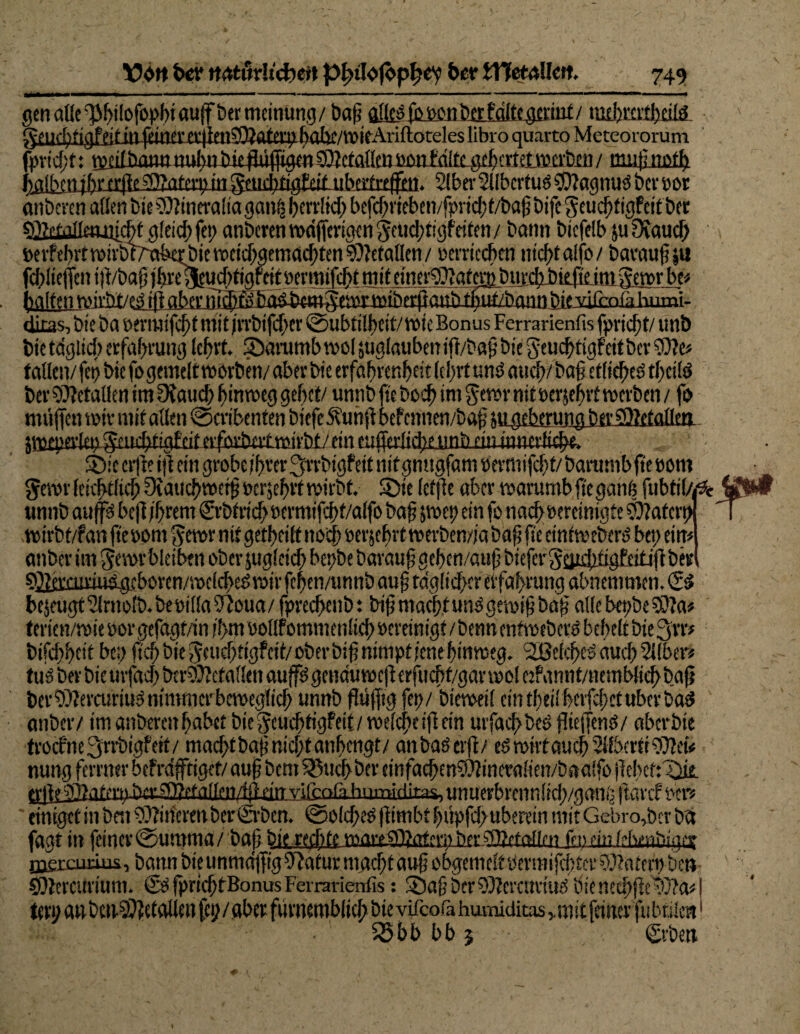 Von der natürlichen Philosophey der Metallen. 749
gen alle Philosophi auff der meinung/ daß alles so von der kälte gerint/ mehrertheils
Feuchtigkeit in seiner ersten Matery habe/wie Aristoteles libro quarto Meteororum
spricht: weil dann nuhn die flüssigen Metallen von kälte gehertet werden / muß noth
halben ihr erste Matery in Feuchtigkeit ubertreffen. Aber Albertus Magnus der vor
anderen allen die Mineralia gantz herrlich beschrieben/spricht/daß dise Feuchtigkeit der
Metallen nicht gleich sey anderen wässerigen Feuchtigkeiten / dann dieselb zu Rauch
verkehrt wirdt / aber die weichgemachten Metallen / verriechen nicht also / darauß zu
schliessen ist/daß ihre Feuchtigkeit vermischt mit einer Matery durch die sie im Fewr be⸗
halten wirdt/es ist aber nichts das dem Fewr widerstand thut/dann die viscosa humi-
ditas, die da vermischt mit jrrdischer Subtilheit/ wie Bonus Ferrariensis spricht/ und
die täglich erfahrung lehrt. Darumb wol zuglauben ist/daß die Feuchtigkeit der Me⸗
tallen/ sey die so gemelt worden/ aber die erfahrenheit lehrt uns auch/ daß etliches theils
der Metallen im Rauch hinweg gehet/ unnd sie doch im Fewr nit verzehrt werden / so
müssen wir mit allen Scribenten diese Kunst bekennen/daß zu geberung der Metallen
zweyerley Feuchtigkeit erfordert wirdt / ein eusserliche und ein innerliche.
Die erste ist ein grobe ihrer Jrrdigkeit nit gnugsam vermischt/ darumb sie vom
Fewr leichtlich Rauchweiß verzehrt wirdt. Die letste aber warumb sie gantz subtil/
unnd auffs best ihrem Erdtrich vermischt/also daß zwey ein so nach vereinigte Matery
wirdt/kan sie vom Fewr nit getheilt noch verzehrt werden/ja daß sie eintweders bey ein⸗
ander im Fewr bleiben oder zugleich beyde darauß gehen/auß dieser Feuchtigkeit ist der
Mercurius geboren/welches wir sehen/unnd auß täglicher erfahrung abnemmen. Es
bezeugt Arnold. de villa Noua / sprechend: diß macht uns gewiß daß alle beyde Ma⸗
terien/wie vor gesagt/in ihm vollkommenlich vereinigt / denn entweders behelt die Jrr⸗
dischheit bey sich die Feuchtigkeit/ oder diß nimpt jene hinweg. Welches auch Alber⸗
tus der die ursach der Metallen auffs genäuwest ersucht/gar wol erkannt/nemblich daß
der Mercurius nimmer beweglich unnd flüssig sey / dieweil ein theil herschet uber das
ander/ im anderen habet die Feuchtigkeit / welche ist ein ursach des fliessens/ aber die
trockne Jrrdigkeit / macht daß nicht anhengt / an das erst / es wirt auch Alberti Mei⸗
nung ferrner bekräfftiget/ auß dem Buch der einfachen Mineralien/da also stehet: Die
erste Matery der Metallen/ist ein viscosa humiditas, unuerbrennlich/gantz starck ver⸗
einiget in den Mineren der Erden. Solches stimbt hüpsch uberein mit Gebro, der da
sagt in seiner Summa / daß die rechte ware Matery der Metallen sey ein lebendiger
mercurius, dann die unmässig Natur macht auß obgemelt vermischter Matery den
Mercurium. Es spricht Bonus Ferrariensis: Daß der Mercurius die nechste Ma⸗
tery an den Metallen sey / aber fürnemblich die viscosa humiditas, mit seiner subtilen
Bbb bb 3 Erden